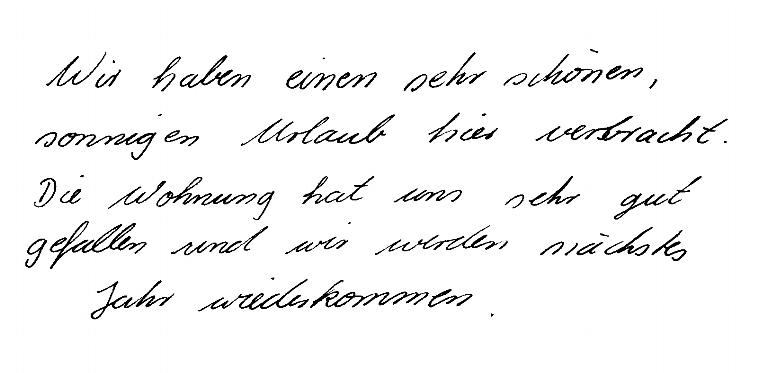 Wir haben einen sehr schönen,
sonnigen Urlaub hier verbracht.
Die Wohnung hat uns sehr gut
gefallen und wir werden nächstes
Jahr wiederkommen.